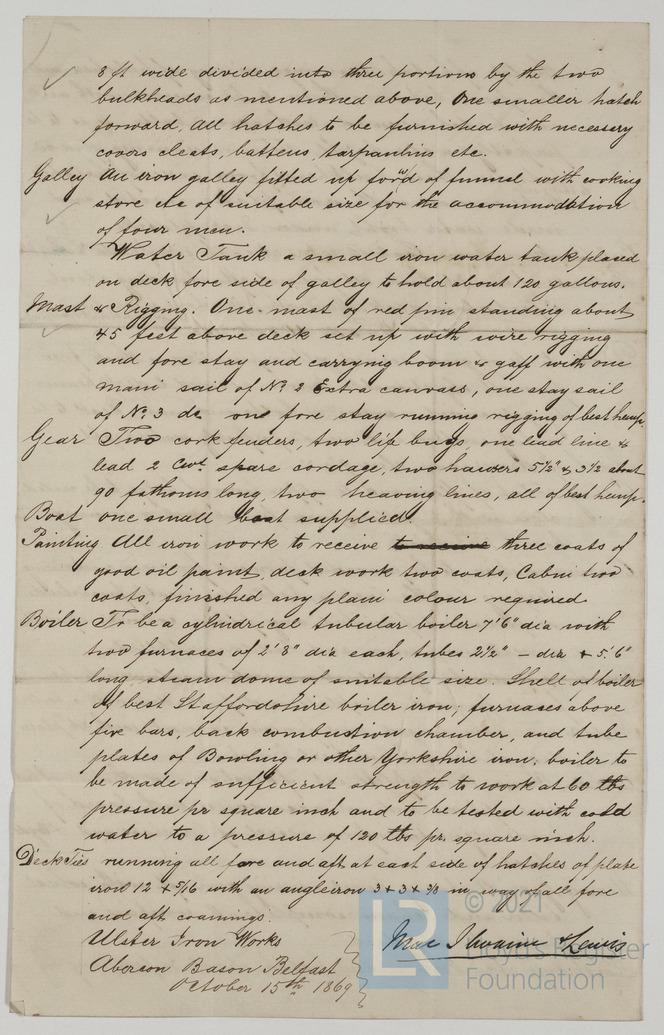 8 ft wide divided into three portions by the two
bulkheads as mentioned above, One smaller hatch
forward, all hatches to be furnished with necessary
covers cleats, battens, tarpaulins etc.
Galley An iron galley fitted up forwd of funnel with cooking
store etc of suitable size for the accommodation
of four men.
Water Tank a small iron water tank placed
on deck fore side of galley to hold about 120 gallons.
Mast & Rigging. One mast of red pine standing about
45 feet above deck set up with wire rigging
and fore stay and carrying boom & gaff with one
main sail of No 2 Extra canvass, one stay sail
of No. 3 do one fore stay running rigging of best hemp.
Gear Two cork fenders, two life buoys, one lead line &
lead 2 Cwt. spare cordage, two hawsers 5½" & 3½ about
90 fathoms long, two heaving lines, all of best hemp.
Boat one small boat supplied.
Painting All iron work to receive to receive three coats of
good oil paint, deck work two coats, Cabin two
coats, finished any plain colour required
Boiler To be a cylindrical tubular boiler 7'6" dia with
two furnaces of 2'8" dia each, tubes 2½" - dia & 5'.6"
long, steam dome of suitable size. Shell of boiler
of best Staffordshire boiler iron; furnaces above
fire bars, back combustion chamber, and tube
plates of Bowling or other Yorkshire iron. boiler to
be made of sufficient strength to work at 60 lbs
pressure pr square inch and to be tested with cold
water to a pressure of 120 lbs pr. square inch.
Deck Ties running all fore and aft at each side of hatches of plate
iron 12 + 5/16 with an angle iron 3 + 3 + 3/8 in way of all fore
and aft coamings.
Ulster Iron Works
Abercon Bason Belfast
October 15th 1869
Mac Ilwaine & Lewis
© 2021
Lloyd's Register
Foundation
LR